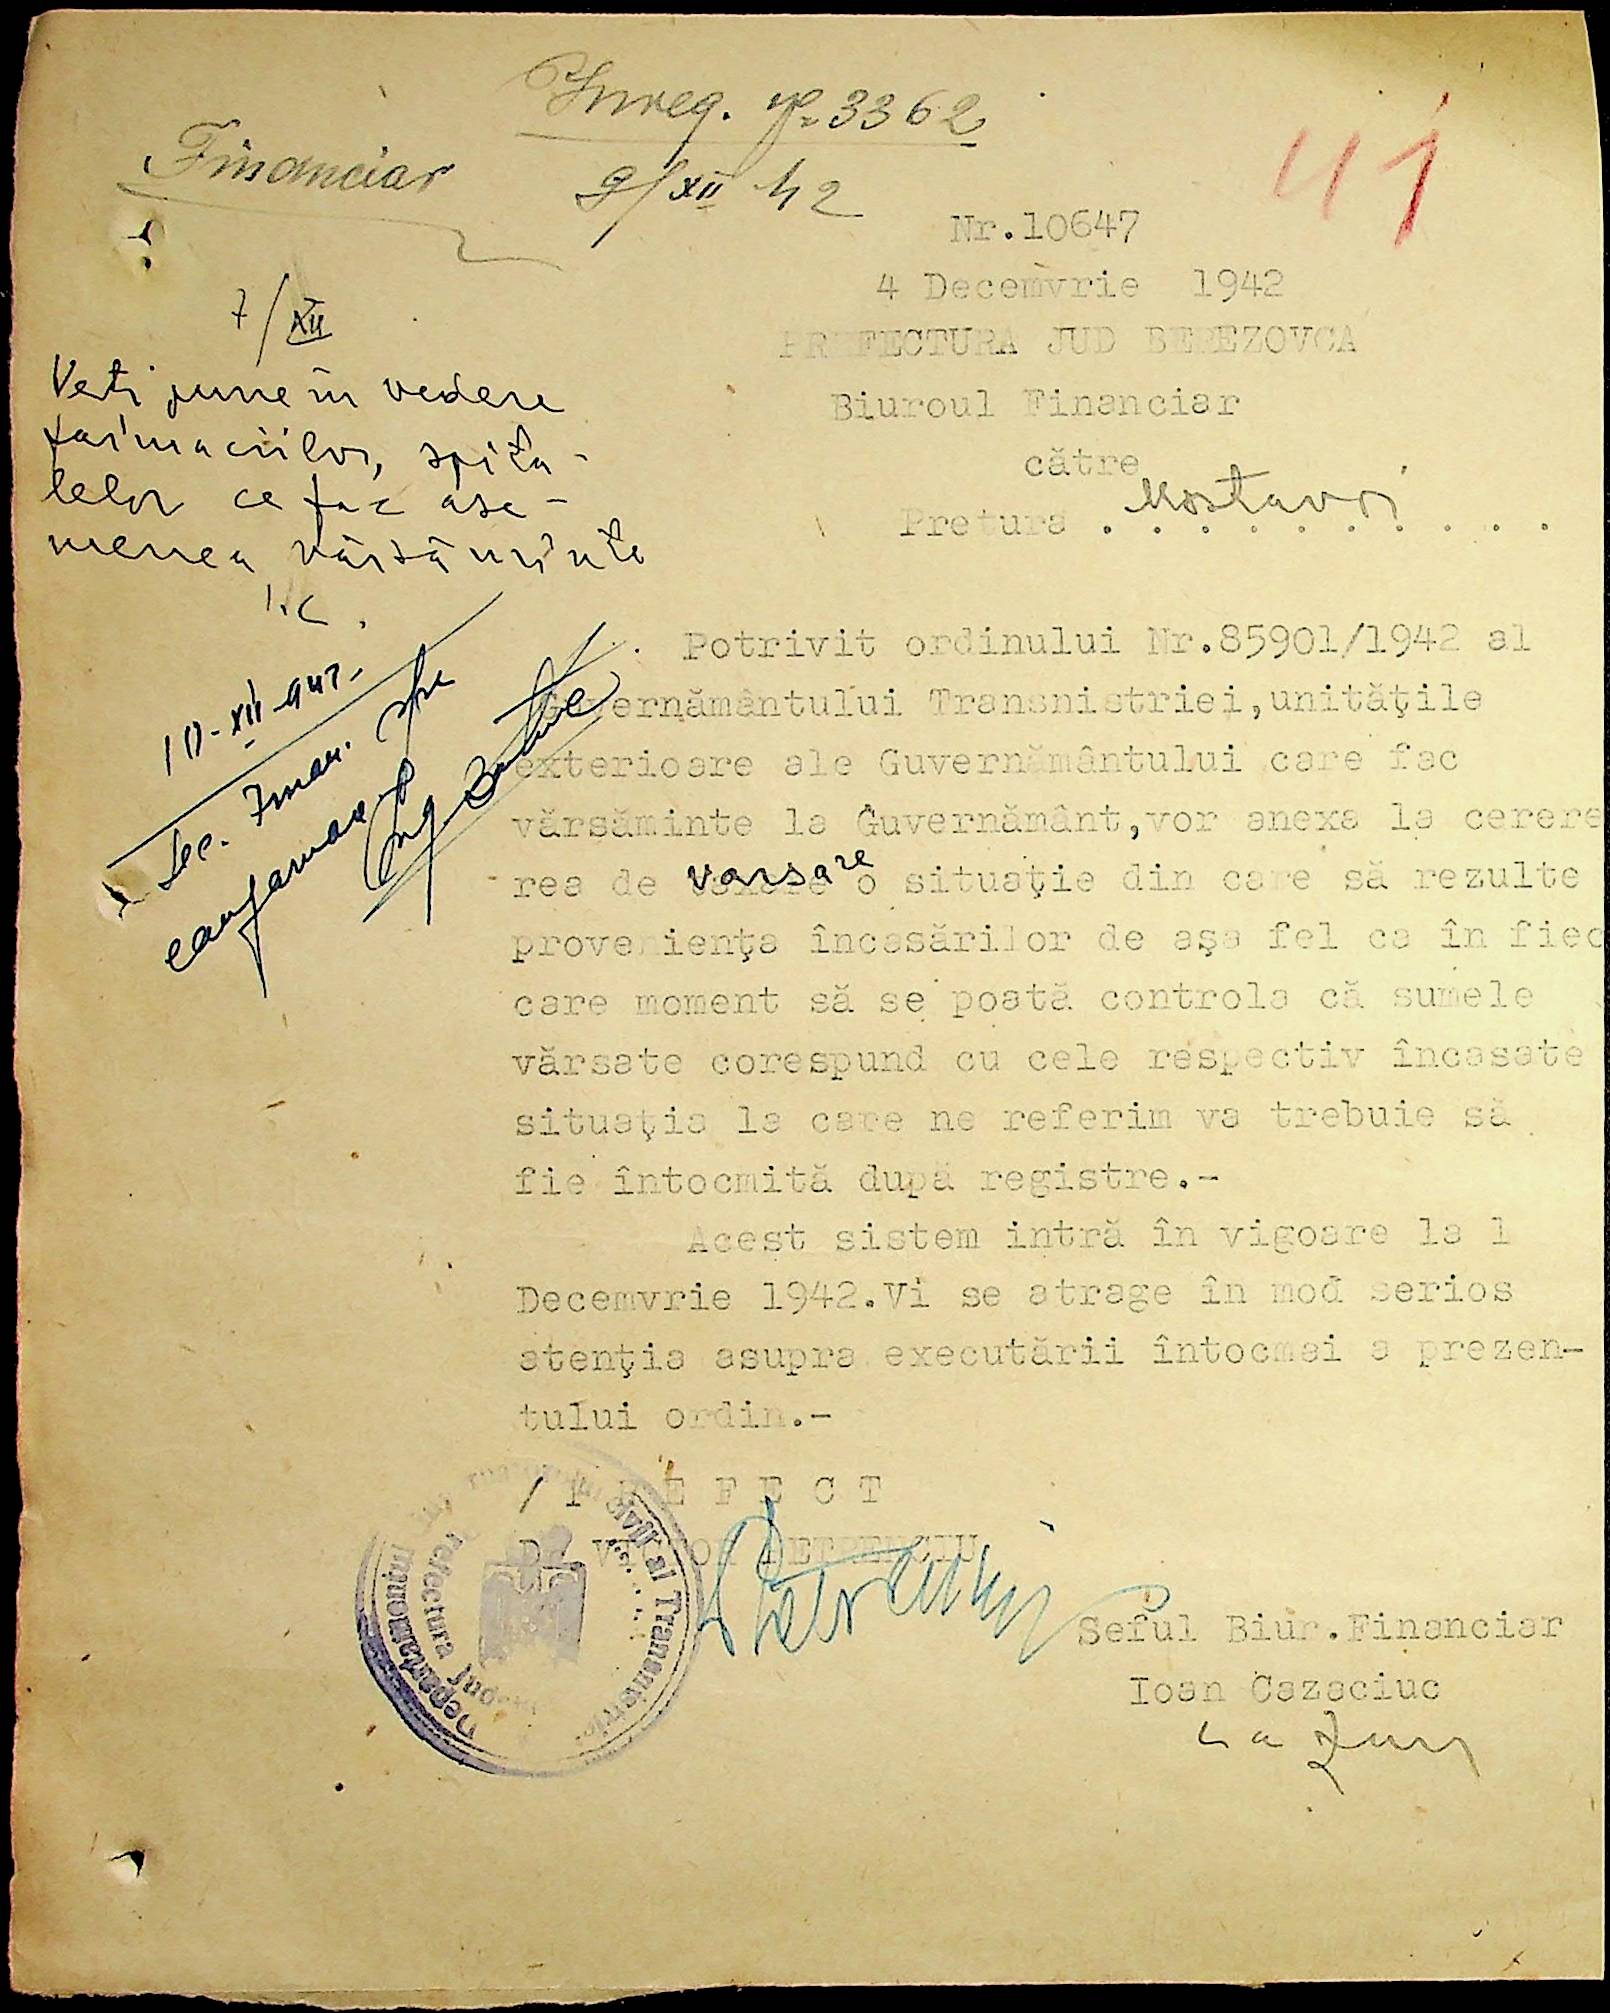 Inreg. No 3362
9/XII 42
Financiar
41
Nr.10647
4 Decemvrie 1942
PREFECTURA JUD BEREZOVCA
Biuroul Financiar
către
Pretura . Mostavoi . . . . . . . . .
7/XII
Veti pune in vedere
farmaciilor, spita-
lelor ce fac ase-
menea vărsăminte
10-XII-942-
Sec. Finan.
conformare
Potrivit ordinului Nr.85901/1942 al
Guvernământului Transnistriei,unităţile
exterioare ale Guvernământului care fac
vărsăminte la Guvernământ,vor anexa la cerere
rea de varsare o situaţie din care să rezulte
provenienţa încasărilor de aşa fel ca în fiec
care moment să se poată controla că sumele
vărsate corespund cu cele respectiv încasate
situaţia la care ne referim va trebuie să
fie întocmită după registre.-
Acest sistem intră în vigoare la 1
Decemvrie 1942.Vi se atrage în mod serios
atenţia asupra executării întocmai a prezen-
tului ordin.-
/ P R E F E C T
Dr VICTOR PETRENCIU
Seful Biur.Financiar
Ioan Cazaciuc
Prefectura Județul
civil al Transnistriei